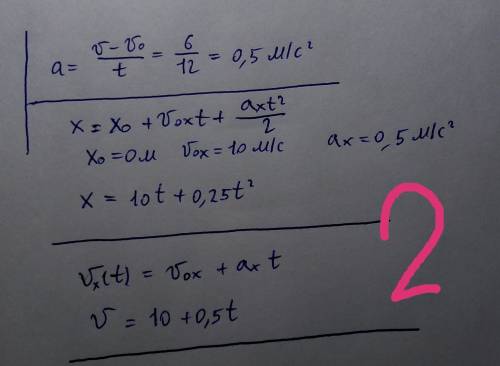 a = (v - v₀)/t = 6/12 = 0,5 м/с²
x = x₀ + v₀ₓt + aₓt²/2
x₀ = 0 м v₀ₓ = 10 м/с aₓ = 0,5 м/с²
x = 10t + 0,25t²
2
vₓ(t) = v₀ₓ + aₓ t
v = 10 + 0,5t